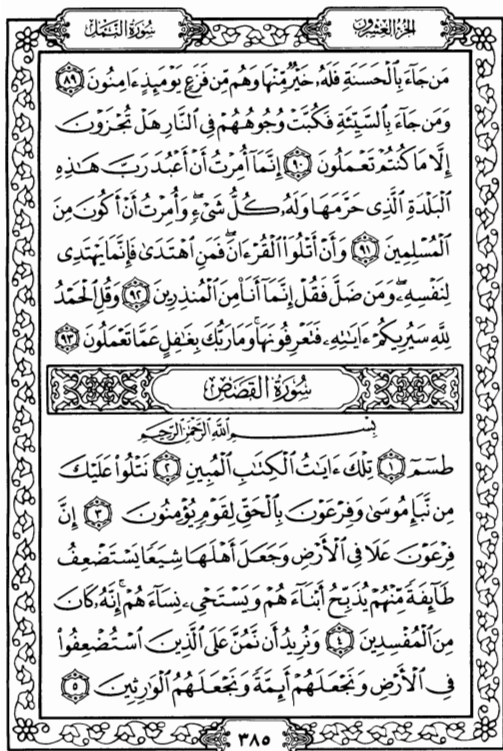 سُورَةُ النَّمْلِ
الجُزْءُ العِشْرُونَ
مَن جَآءَ بِٱلْحَسَنَةِ فَلَهُۥ خَيْرٌ مِّنْهَا وَهُم مِّن فَزَعٍ يَوْمَئِذٍ ءَامِنُونَ ٨٩
وَمَن جَآءَ بِٱلسَّيِّئَةِ فَكُبَّتْ وُجُوهُهُمْ فِى ٱلنَّارِ هَلْ تُجْزَوْنَ
إِلَّا مَا كُنتُمْ تَعْمَلُونَ ٩٠ إِنَّمَآ أُمِرْتُ أَنْ أَعْبُدَ رَبَّ هَٰذِهِ
ٱلْبَلْدَةِ ٱلَّذِى حَرَّمَهَا وَلَهُۥ كُلُّ شَىْءٍ ۖ وَأُمِرْتُ أَنْ أَكُونَ مِنَ
ٱلْمُسْلِمِينَ ٩١ وَأَنْ أَتْلُوَا۟ ٱلْقُرْءَانَ ۖ فَمَنِ ٱهْتَدَىٰ فَإِنَّمَا يَهْتَدِى
لِنَفْسِهِۦ ۖ وَمَن ضَلَّ فَقُلْ إِنَّمَآ أَنَا۠ مِنَ ٱلْمُنذِرِينَ ٩٢ وَقُلِ ٱلْحَمْدُ
لِلَّهِ سَيُرِيكُمْ ءَايَٰتِهِۦ فَتَعْرِفُونَهَا ۚ وَمَا رَبُّكَ بِغَٰفِلٍ عَمَّا تَعْمَلُونَ ٩٣
سُورَةُ القَصَصِ
بِسْمِ ٱللَّهِ ٱلرَّحْمَٰنِ ٱلرَّحِيمِ
طسٓمٓ ١ تِلْكَ ءَايَٰتُ ٱلْكِتَٰبِ ٱلْمُبِينِ ٢ نَتْلُوا۟ عَلَيْكَ
مِن نَّبَإِ مُوسَىٰ وَفِرْعَوْنَ بِٱلْحَقِّ لِقَوْمٍ يُؤْمِنُونَ ٣ إِنَّ
فِرْعَوْنَ عَلَا فِى ٱلْأَرْضِ وَجَعَلَ أَهْلَهَا شِيَعًا يَسْتَضْعِفُ
طَآئِفَةً مِّنْهُمْ يُذَبِّحُ أَبْنَآءَهُمْ وَيَسْتَحْىِۦ نِسَآءَهُمْ ۚ إِنَّهُۥ كَانَ
مِنَ ٱلْمُفْسِدِينَ ٤ وَنُرِيدُ أَن نَّمُنَّ عَلَى ٱلَّذِينَ ٱسْتُضْعِفُوا۟
فِى ٱلْأَرْضِ وَنَجْعَلَهُمْ أَئِمَّةً وَنَجْعَلَهُمُ ٱلْوَٰرِثِينَ ٥
٣٨٥